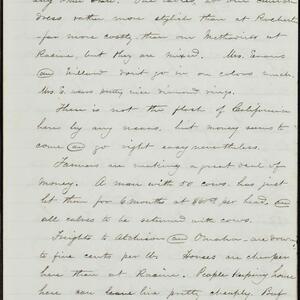 any other
dress rather more stylish than at Rochest
far more costly than our Methodists at
Racine, but they are mixed. Mrs. Evans
and Willard don't go in on colours much.
Mrs. E. wears pretty nice diamond rings.
There is not the flash of California
here by any means, but money seems to
come and go right easy nevertheless.
Farmers are making a great deal of
money. A man with 50 cows has just
let them for 6 months at per head, and
all calves to be returned with cows.
Freights to Atchison and Omaha are down
to five cents per lb. Houses are cheaper
here than at Racine. People keeping house
here can live pretty cheaply. But